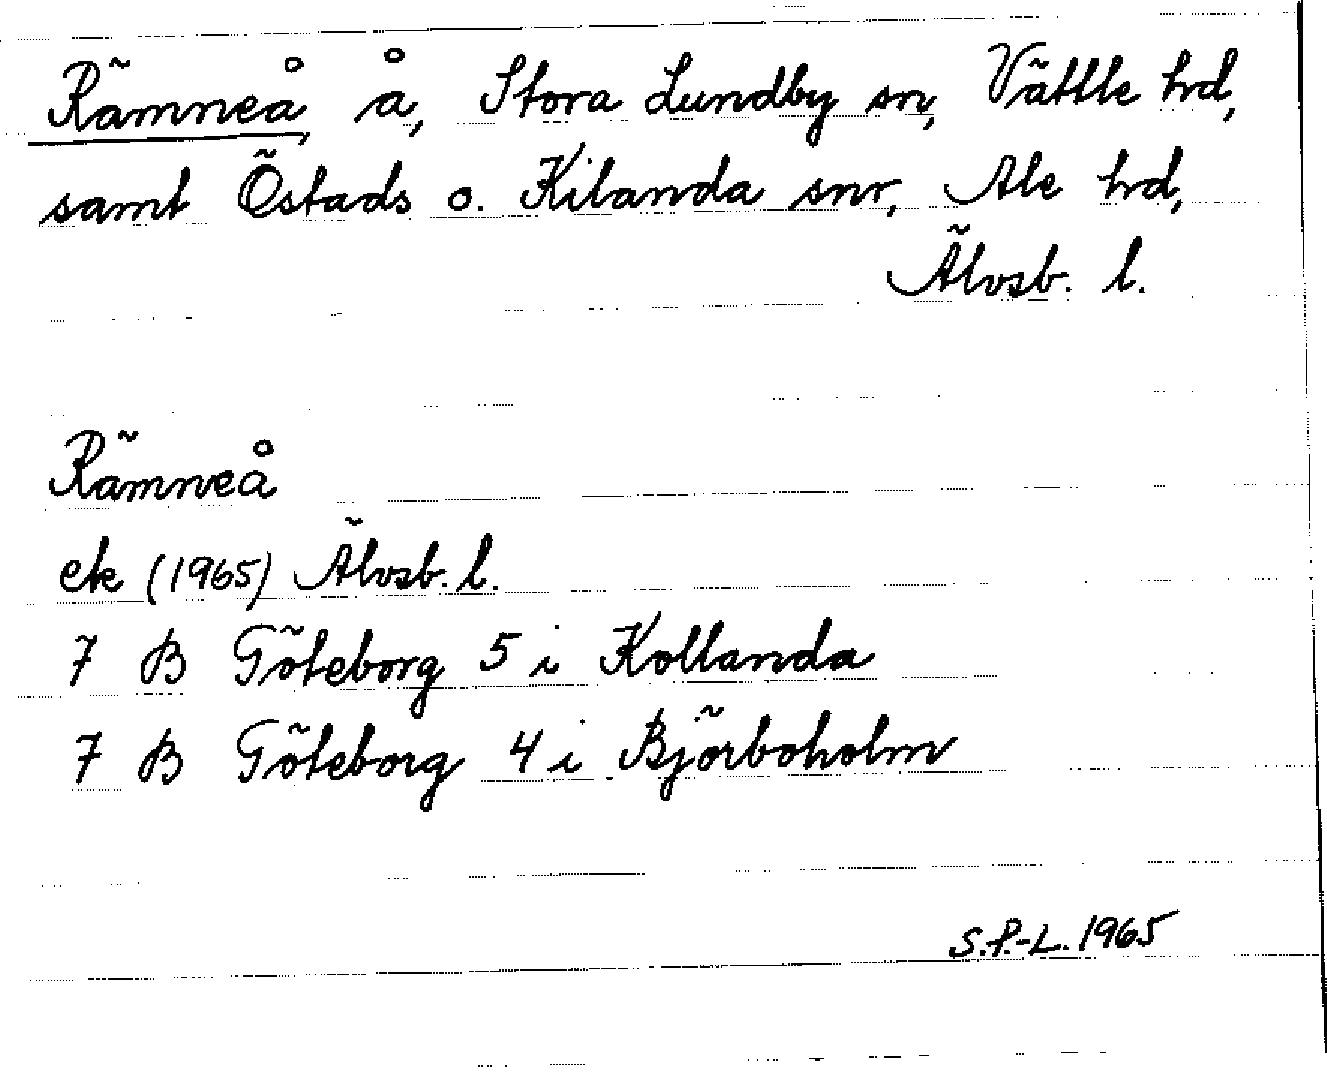 Rämneå, å, Stora Lundby sn, Vättle hd,
samt Östads o. Kilanda snr, Ale hd,
Älvsb. l.
Rämneå
ek (1965) Älvsb. l.
7 B Göteborg 5 i Kollanda
7 B Göteborg 4 i Björboholm
S.P.-L. 1965